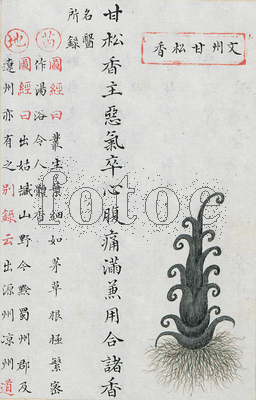 文州甘松香
甘松香主惡氣卒心腹痛滿兼用合諸香
名醫
所錄
苗
圖經曰叢生葉細如茅草根極繁密
作湯浴令人體香
地
圖經曰出姑臧山野今黔蜀州郡及
遼州亦有之別錄云出源州涼州道
fotoe